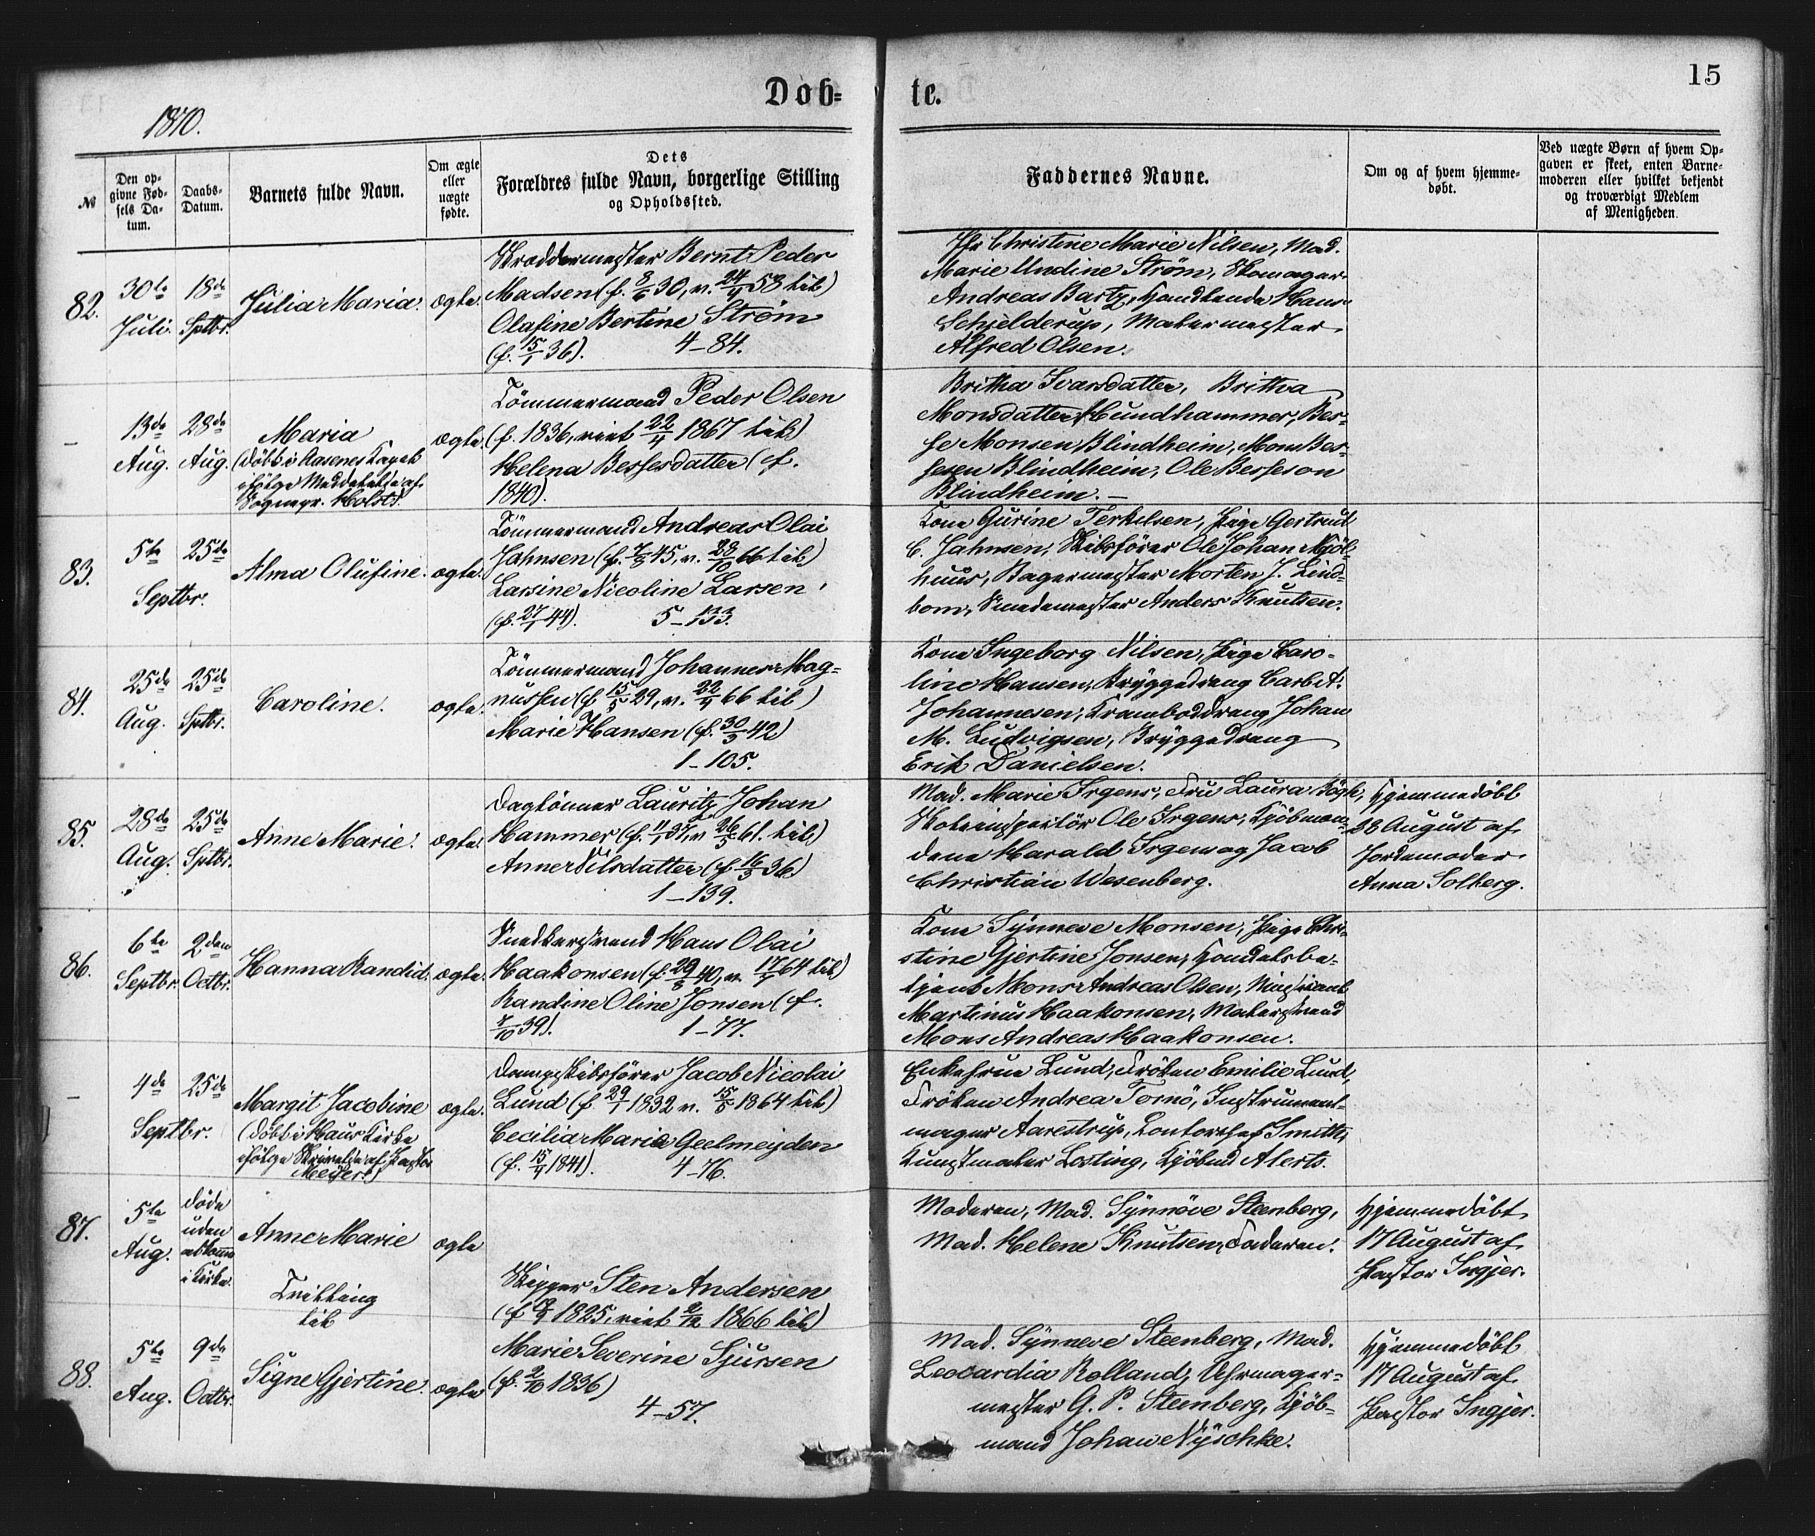 15
Døb=
te.
1870.
№
Den op-
givne Fød-
sels Da-
tum.
Daabs-
Datum.
Barnets fulde Navn.
Om ægte
eller
uægte
fødte.
Dets
Forældres fulde Navn, borgerlige Stilling
og Opholdssted.
Faddernes Navne.
Om og af hvem hjemme-
døbt.
Ved uægte Børn af hvem Op-
gaven er skeet, enten Barne-
moderen eller hvilket bekjendt
og troværdigt Medlem
af Menigheden.
82.
30te
Juli.
18de
Sptbr.
Julia Maria.
ægte.
Skræddermester Bernt Peder
Madsen (f. 8/6 30, v. 24/4 58 til)
Olafine Bertine Strøm
(f. 15/1 36). 4–84.
Christine Marie Nilsen, Mad.
Marie Undine Strøm, Skomager
Andreas Bartz, Handlende Hans
Schjelderup, Malermester
Alfred Olsen.
–
13de
Aug.
28de
Aug.
Maria
(døbt i Aasenes Kapel
ifølge Meddelelse af
Sognepr. Holst).
ægte
Tømmermand Peder Olsen
(f. 1836, viet 22/4 1867 til)
Helena Bessesdatter (f.
1840).
Britha Ivarsdatter, Brittva
Monsdatter Hundhammer, Bes-
se Monsen Blindheim, Mons Bes-
sesen Blindheim, Ole Besseson
Blindheim. –
83.
5te
25de
Septbr.
Alma Olufine.
ægte.
Tømmermand Andreas Olai
Johnsen (f. 7/9 45, v. 28/10 66 til)
Larsine Nicoline Larsen
(f. 27/1 44). 5–133.
Kone Gurine Terkelsen, Pige Gertrud
C. Jahnsen, Skibsfører Ole Johan Mjöl-
huus, Bagermester Morten J. Lind-
bom, Smedemester Anders Knutsen.
84.
25de
Aug.
25de
Sptbr.
Caroline.
ægte.
Tømmermand Johannes Mag-
nussen (f. 15/5 29, v. 22/4 66 til)
Marie Hansen (f. 30/3 42)
1–105.
Kone Ingeborg Nilsen, Pige Caro-
line Hansen, Bryggedreng Carl A.
Johannesen, Kramboddreng Johan
M. Ludvigsen, Bryggedreng
Erik Danielsen.
85.
28de
Aug.
25de
Sptbr.
Anne Marie.
ægte.
Daglønner Lauritz Johan
Hammer (f. 11/1 37, v. 26/5 61. til)
Anne Nilsdatter (f. 16/3 36)
1–139.
Mad. Marie Irgens, Fru Laura Bögh,
Skoleinspektör Ole Irgens, Kjöbmæn-
dene Harald Irgens og Jacob
Christian Wesenberg.
Hjemmedöbt
28 August af
Jordemoder
Anna Solberg.
86.
6te
Septbr.
2den
Octbr.
Hanna Randid.
ægte.
Snedkersvend Hans Olai
Haakonsen (f. 29/8 40, v. 17/4 64 til)
Randine Oline Jonsen (f.
7/10 39). 1–77.
Kone Synneve Monsen, Pige Chri-
stine Gjertine Jonsen, Handelsbe-
tjent Mons Andreas Olsen,
Martinus Haakonsen, Malersvend
Mons Andreas Haakonsen.
–
4de
25de
Septbr.
Margit Jacobine
(døbt i Haus Kirke
ifølge Skrivelse af Pastor
Meyer)
ægte.
Dampskibsfører Jacob Nicolai
Lund (f 29/1 1832 v. 15/5 1864 til)
Cecilia Marie Geelmeyden
(f. 15/4 1841). 4–76.
Enkefrue Lund, Frøken Emilie Lund,
Frøken Andrea Tornö, Instrument-
mager Aarestrup, Contorchef Smitt,
Kunstmaler Losting, Kjöbmd Alerts.
87.
5te
Aug.
døde
uden
at komme
i Kirke.
Anne Marie
ægte
Tvilling
til
Skipper Sten Andersen
(f 12/9 1825, viet 2/12 1866 til)
Moderen, Mad. Synnöve Steenberg,
Mad. Helene Knutsen, Faderen.
Hjemmedöbt
17 August af
Pastor Ingjer.
88.
5te
Aug.
9de
Octbr.
Signe Gjertine.
ægte
Marie Severine Sjursen
(f. 2/10 1836)
4–57.
Mad. Synneve Steenberg, Mad.
Leocardia Rolland, Uhrmager-
mester G. P. Steenberg, Kjöb-
mand Johan Nyschke.
Hjemmedöbt
17 August af
Pastor Ingjer.